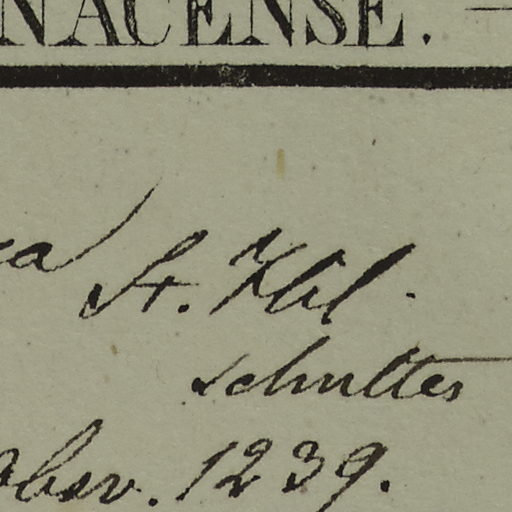 NACENSE. —
a St. Hil.
schultes
obsv. 1239.